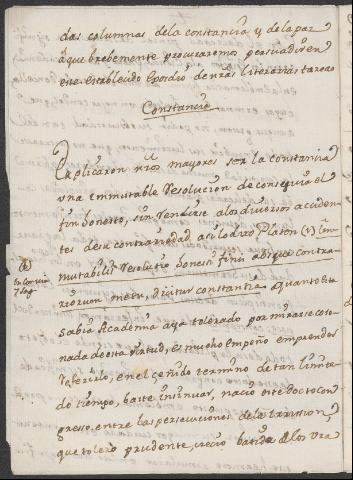 das columnas dela constancia, y de la paz
à que brebemente procuraremos persuadir en
este establecido Exordio de nrãs literarias tareas
Constancia
Explicaron nrõs mayores ser la constancia
una inmutable resolucion de conseguir el
fin honesto, sin rendirse a los diversos acciden
tes de su contrariedad asi lo dixo Platon (1) Im
mutabilis resolutio honesti finis absque contra
riorum metu, dicitur constantia. Quanto esta
(1)
In Convivio
sabia Academia aya tolerado por mirarse coro
nada de esta virtud, es mucho empeño emprender
referirlo, en el ceñido termino de tan limita
do tiempo, baste insinuar, nacio este docto con
greso entre las persecuciones de la
que tolero prudente, crecio batida de los ura